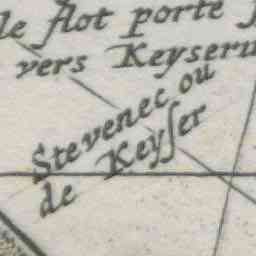 le flot porte
vers Keysern
Stevenec ou
de Keyſer